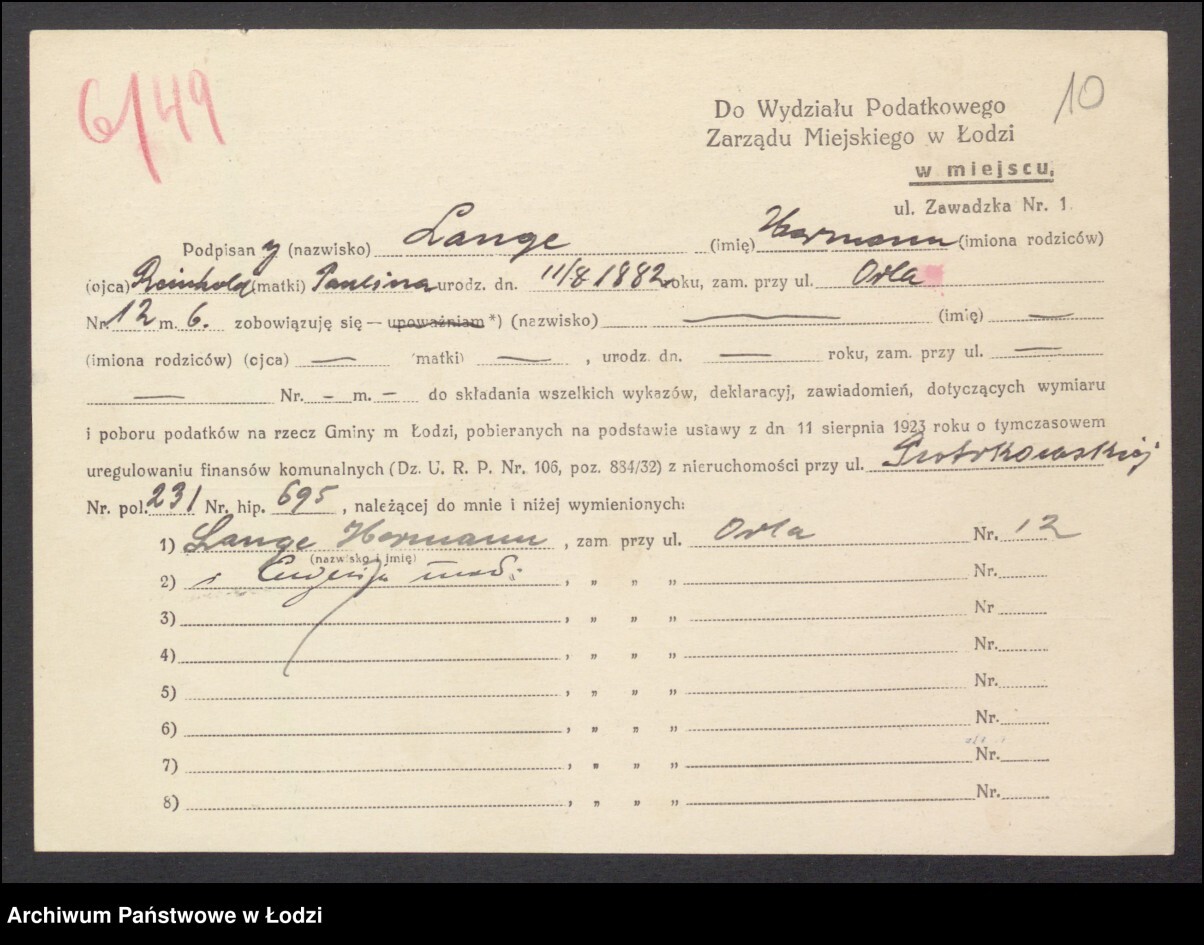 6/49
10
Do Wydziału Podatkowego
Zarządu Miejskiego w Łodzi
w miejscu,
ul. Zawadzka Nr. 1
Podpisany (nazwisko) Lange (imię) Hermann (imiona rodziców)
(ojca) Reinhold (matki) Paulina urodz. dn. 11/8 1882 roku, zam. przy ul. Orla
Nr. 12 m. 6. zobowiązuję się — upoważniam *) (nazwisko) — (imię) —
(imiona rodziców) (ojca) — (matki) — , urodz. dn. — roku, zam. przy ul. —
— Nr. – m. – do składania wszelkich wykazów, deklaracyj, zawiadomień, dotyczących wymiaru
i poboru podatków na rzecz Gminy m Łodzi, pobieranych na podstawie ustawy z dn 11 sierpnia 1923 roku o tymczasowem
uregulowaniu finansów komunalnych (Dz. U. R. P. Nr. 106, poz. 884/32) z nieruchomości przy ul. Piotrkowskiej
Nr. pol. 231 Nr. hip. 695 , należącej do mnie i niżej wymienionych:
1) Lange Hermann , zam przy ul. Orla Nr. 12
(nazwisko i imię)
2) i Eugenja , „ „ „ Nr.
3) , „ „ „ Nr
4) , „ „ „ Nr.
5) , „ „ „ Nr.
6) , „ „ „ Nr.
7) , „ „ „ Nr.
8) , „ „ „ Nr.
Archiwum Państwowe w Łodzi